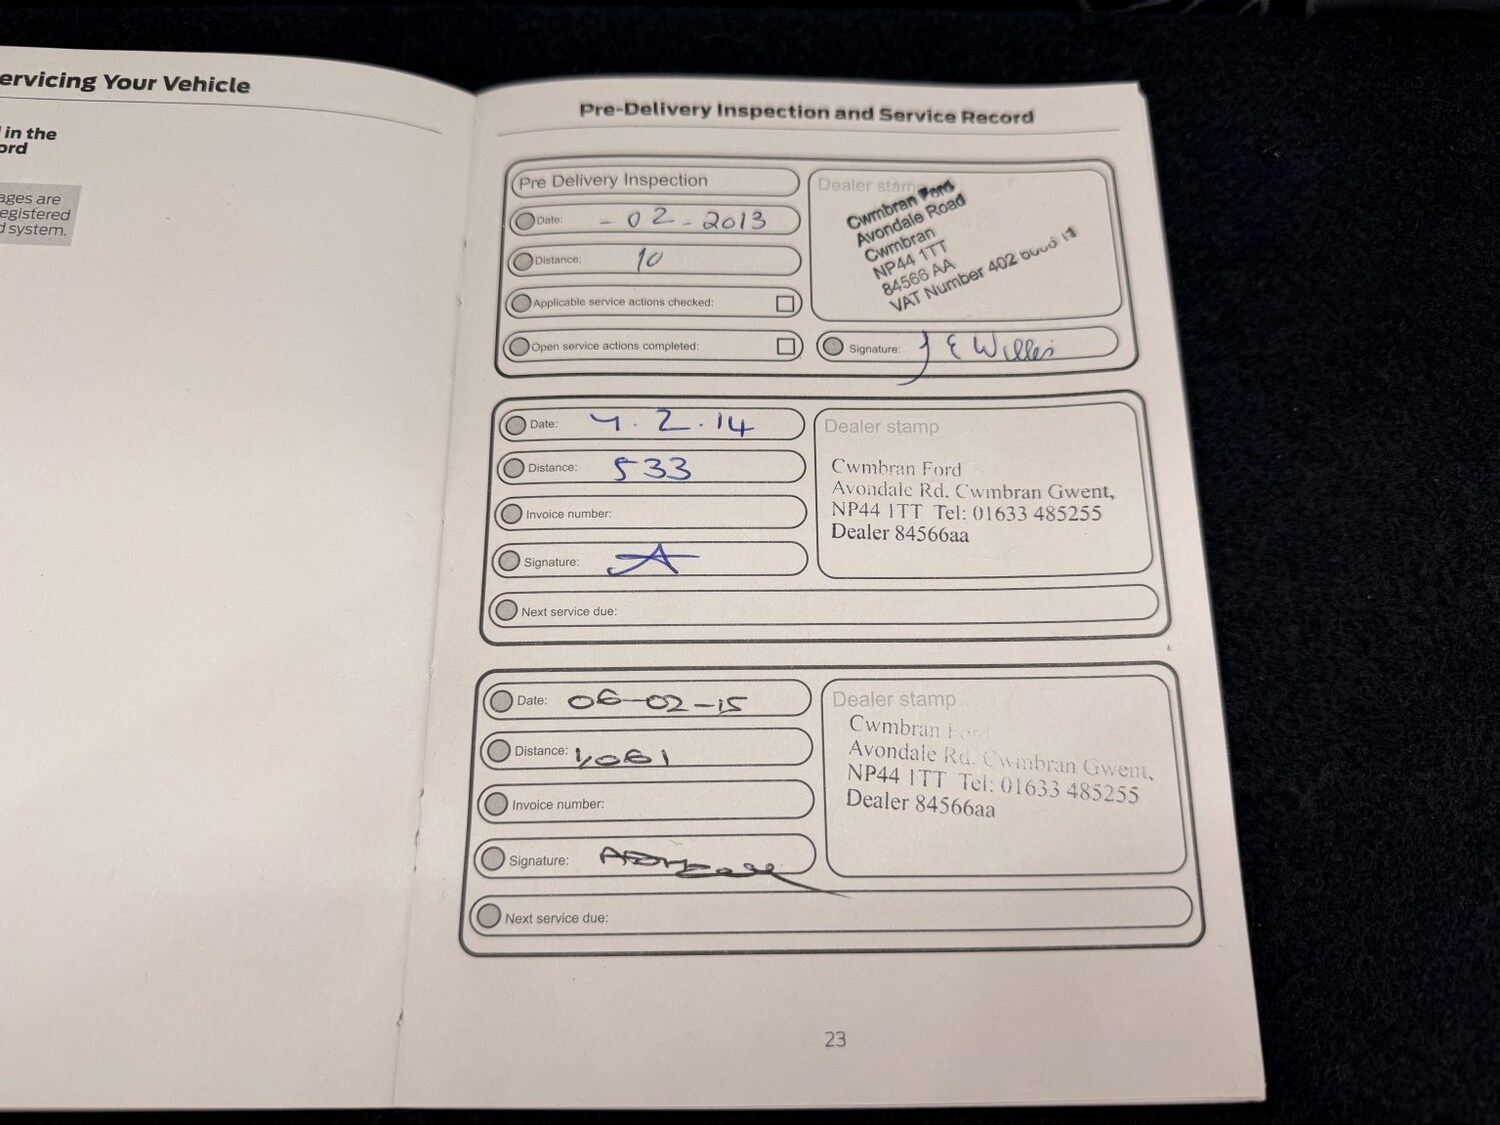 ervicing Your Vehicle
in the
ord
ages are
egistered
d system.
Pre-Delivery Inspection and Service Record
Pre Delivery Inspection
Date: - 02 - 2013
Distance: 10
Applicable service actions checked:
Open service actions completed:
Dealer stamp
Cwmbran Ford
Avondale Road
Cwmbran
NP44 1TT
84566 AA
VAT Number 402
Signature: J E Willis
Date: 4.2.14
Distance: 533
Invoice number:
Signature:
Next service due:
Dealer stamp
Cwmbran Ford
Avondale Rd, Cwmbran Gwent,
NP44 1TT Tel: 01633 485255
Dealer 84566aa
Date: 06-02-15
Distance: 1,061
Invoice number:
Signature:
Next service due:
Dealer stamp
Cwmbran Ford
Avondale Rd, Cwmbran Gwent,
NP44 1TT Tel: 01633 485255
Dealer 84566aa
23